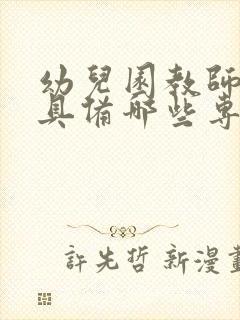 幼兒園教師
具備哪些專
許先哲 新漫畫